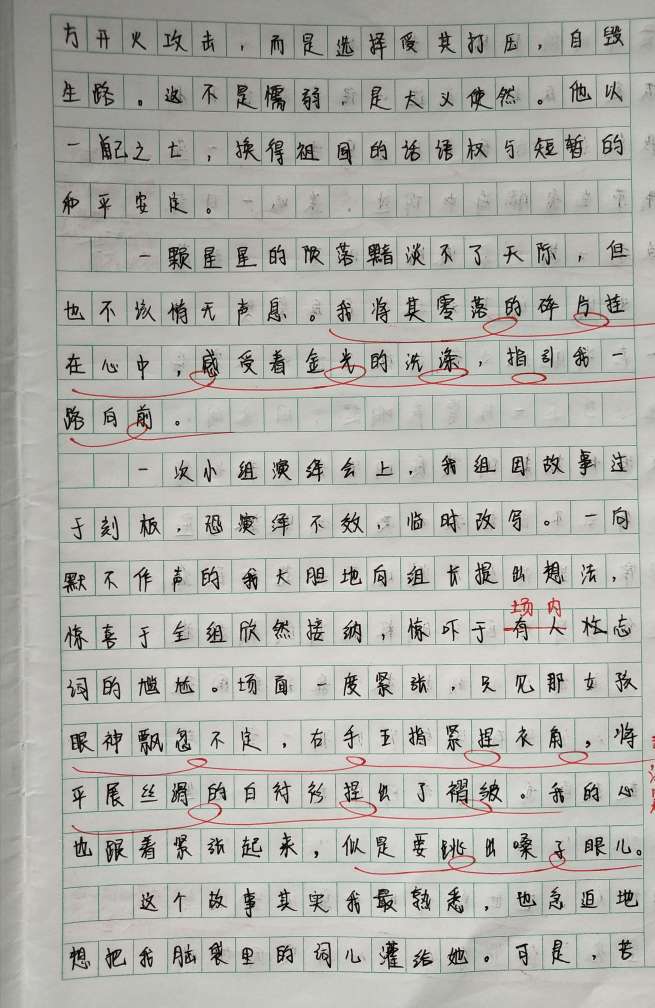 方开火攻击，而是选择受其打压，自毁
生路。这不是懦弱，是大义使然。他以
一自己之亡，换得祖国的话语权与短暂的
和平安定。
一颗星星的陨落黯淡不了天际，但
也不该悄无声息。我将其零落的碎片挂
在心中，感受着金光的洗涤，指引我一
路向前。
一次小组演绎会上，我组因故事过
于刻板，恐演绎不效，临时改写。一向
默不作声的我大胆地向组长提出想法，
场内
惊喜于全组欣然接纳，惊吓于有人忘
词的尴尬。场面一度紧张，只见那女孩
眼神飘忽不定，右手五指紧捏衣角，将
平展丝滑的白衬衫捏出了褶皱。我的心
也跟着紧张起来，似是要跳出嗓子眼儿。
这个故事其实我最熟悉，也急迫地
想把我脑袋里的词儿灌给她。可是，苦